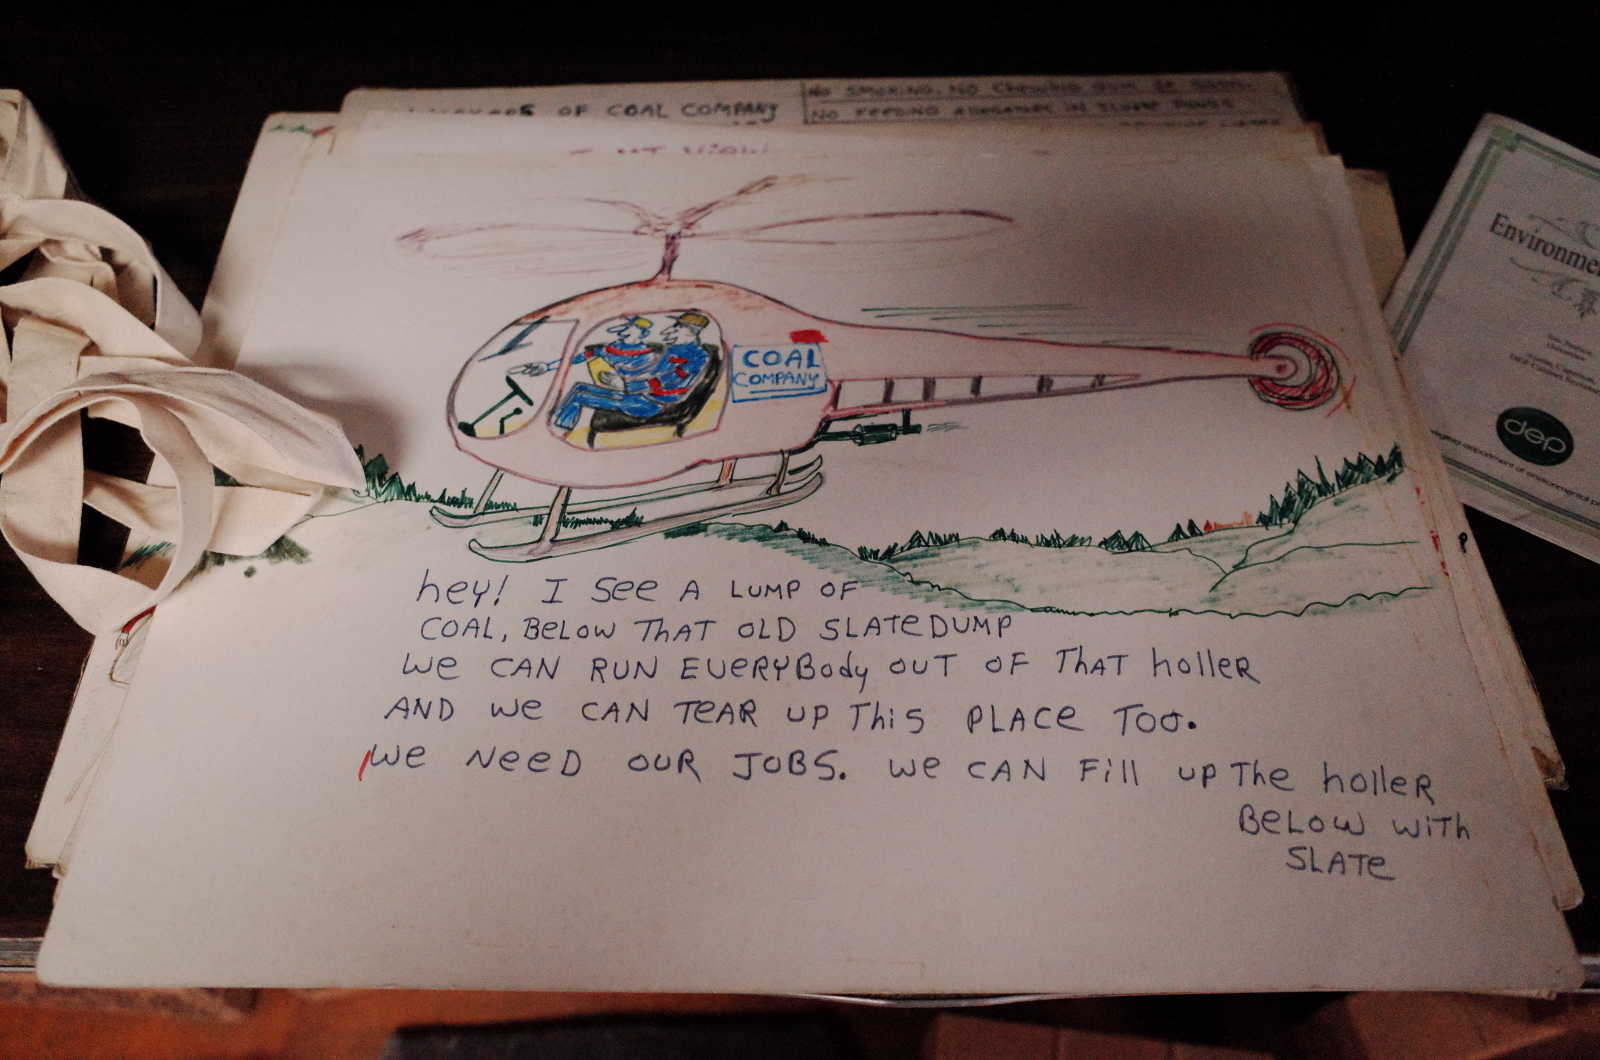 OF COAL COMPANY
NO SMOKING, NO CHEWING GUM
NO FEEDING IN
COAL
COMPANY
hey! I See A LUMP OF
COAL, BeLOW ThAT OLD SLATeDUMP
We CAN RUN EVeRYBody OUT OF ThAT holleR
AND We CAN TeAR UP ThiS PLACe Too.
We NeeD OUR JOBS. We CAN Fill UP The holleR
BeLOW WiTh
SLATe
dep